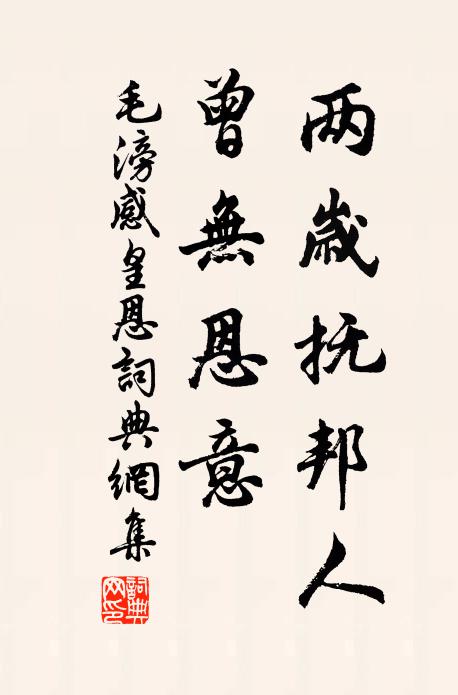 两歲抚邦人
曾無恩意
毛滂感皇恩詞典網集
詞典网印